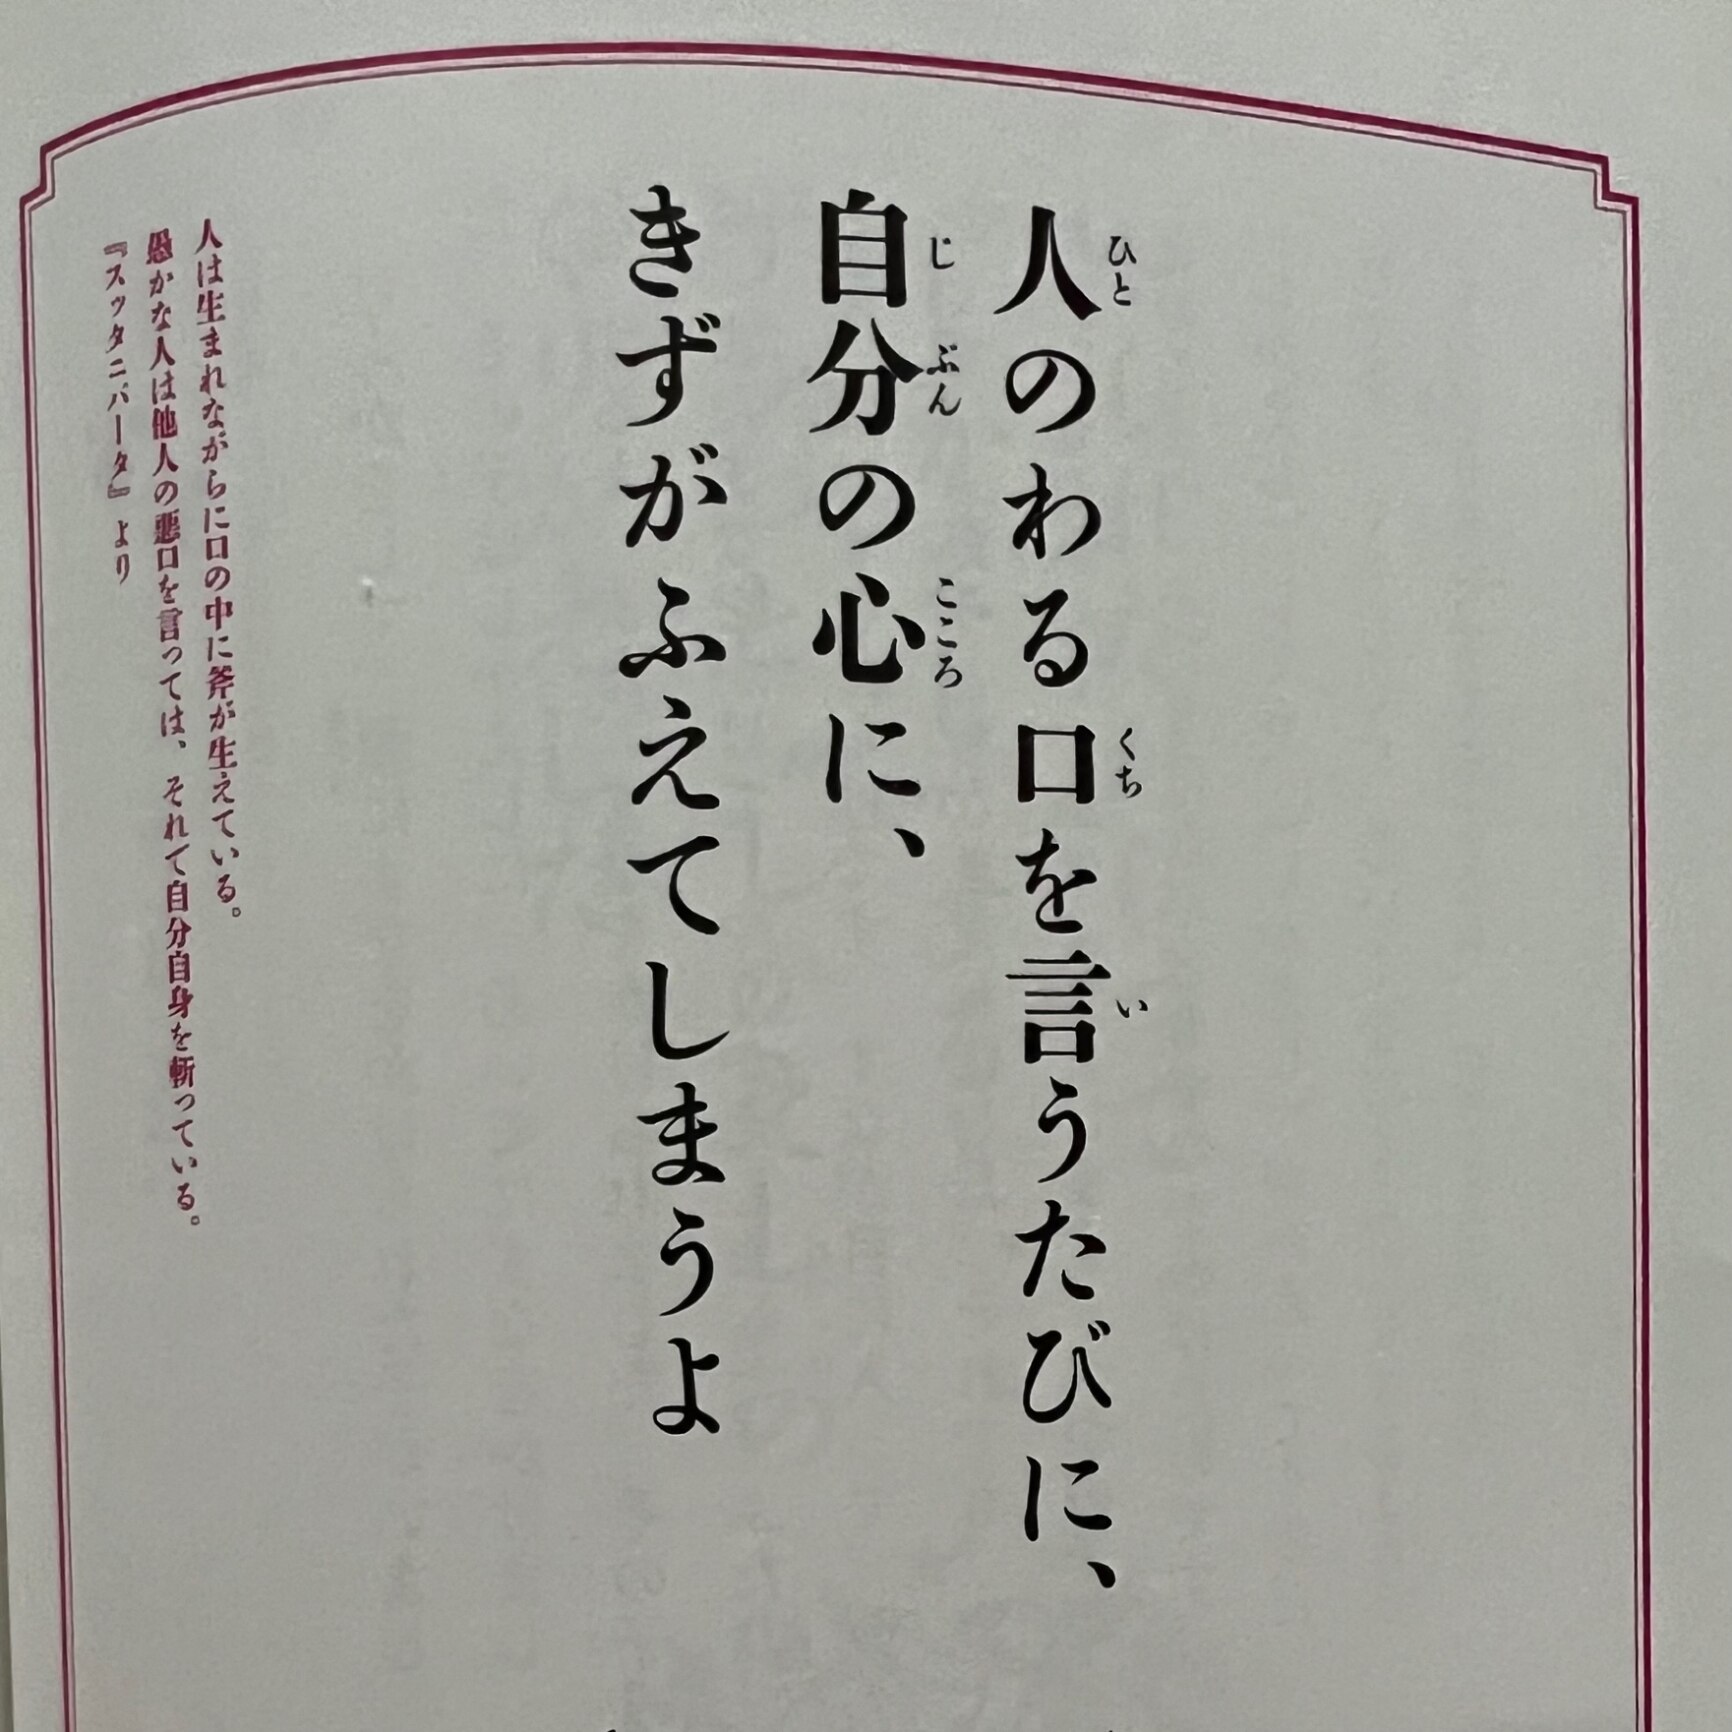 人のわる口を言うたびに、
自分の心に、
きずがふえてしまうよ
人は生まれながらに口の中に斧が生えている。
愚かな人は他人の悪口を言っては、それで自分自身を斬っている。
『スッタニパータ』より